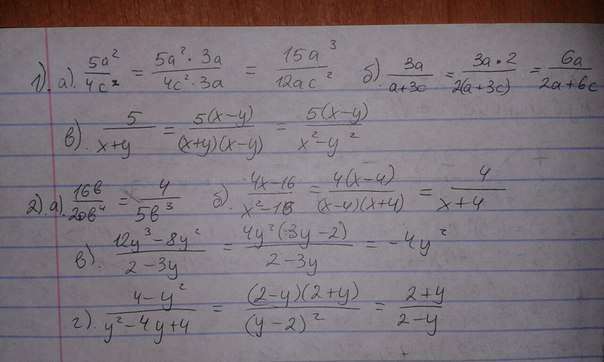 1). а). 5a²/4c² = 5a²·3a/4c²·3a = 15a³/12ac² б) 3a/a+3c = 3a·2/2(a+3c) = 6a/2a+6c
в). 5/x+y = 5(x-y)/(x+y)(x-y) = 5(x-y)/x²-y²
2). а). 16b/20b⁴ = 4/5b³ б). 4x-16/x²-16 = 4(x-4)/(x-4)(x+4) = 4/x+4
в). 12y³-8y²/2-3y = 4y²(3y-2)/2-3y = -4y²
г). 4-y²/y²-4y+4 = (2-y)(2+y)/(y-2)² = 2+y/2-y